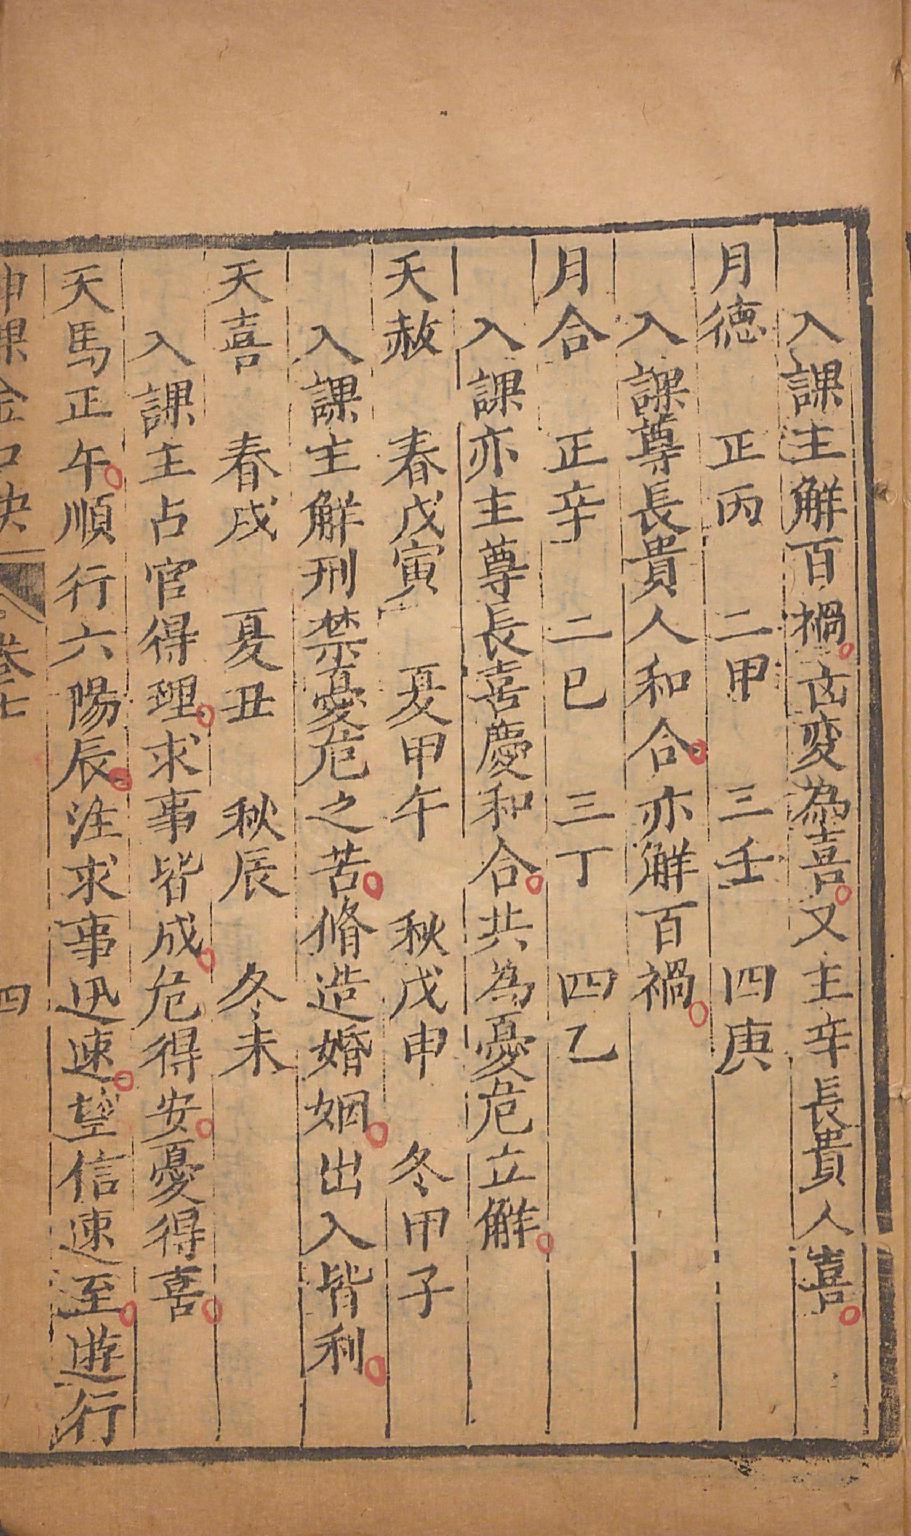 入課主解百禍凶変為喜又主辛長貴人喜
月德 正丙 二甲 三壬 四庚
入課尊長貴人和合亦解百禍
月合 正辛 二巳 三丁 四乙
入課亦主尊長喜慶和合共為憂危立解
天赦 春戊寅 夏甲午 秋戊申 冬甲子
入課主解刑禁憂危之苦脩造婚姻出入皆利
天喜 春戌 夏丑 秋辰 冬未
入課主占官得理求事皆成危得安憂得喜
天馬正午順行六陽辰注求事迅速望信速至遊行
神課金口訣 卷七 四